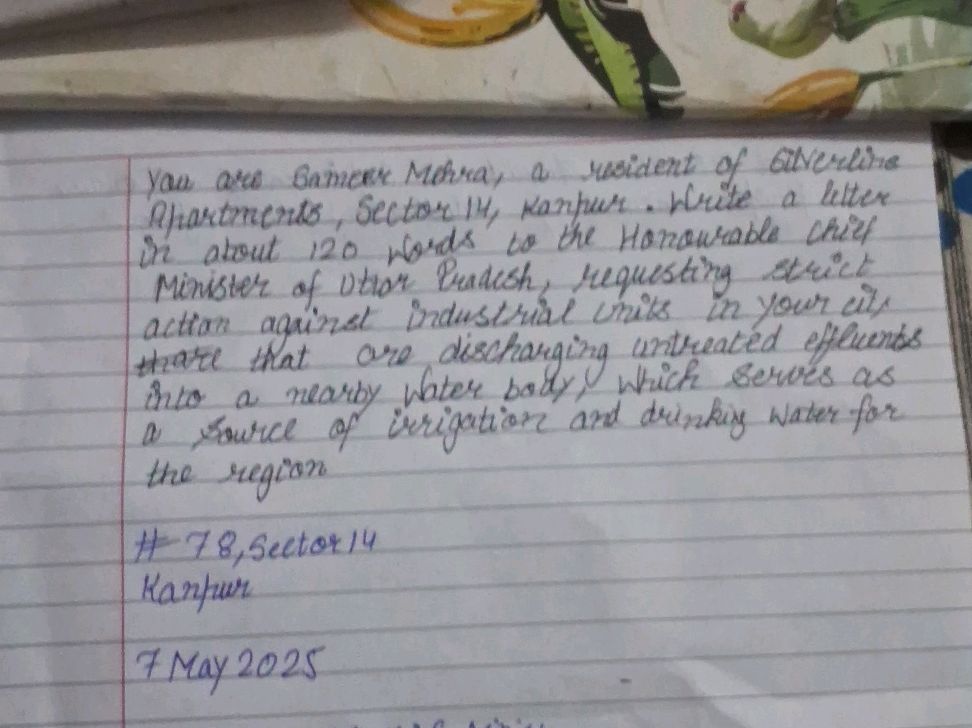 You are Sameer Mehra, a resident of Silverline
Apartments, Sector 14, Kanpur. Write a letter
in about 120 words to the Honourable chief
Minister of Uttar Pradesh, requesting strict
action against industrial units in your city
that are discharging untreated effluents
into a nearby water body, which serves as
a source of irrigation and drinking water for
the region
# 78, Sector 14
Kanpur
7 May 2025